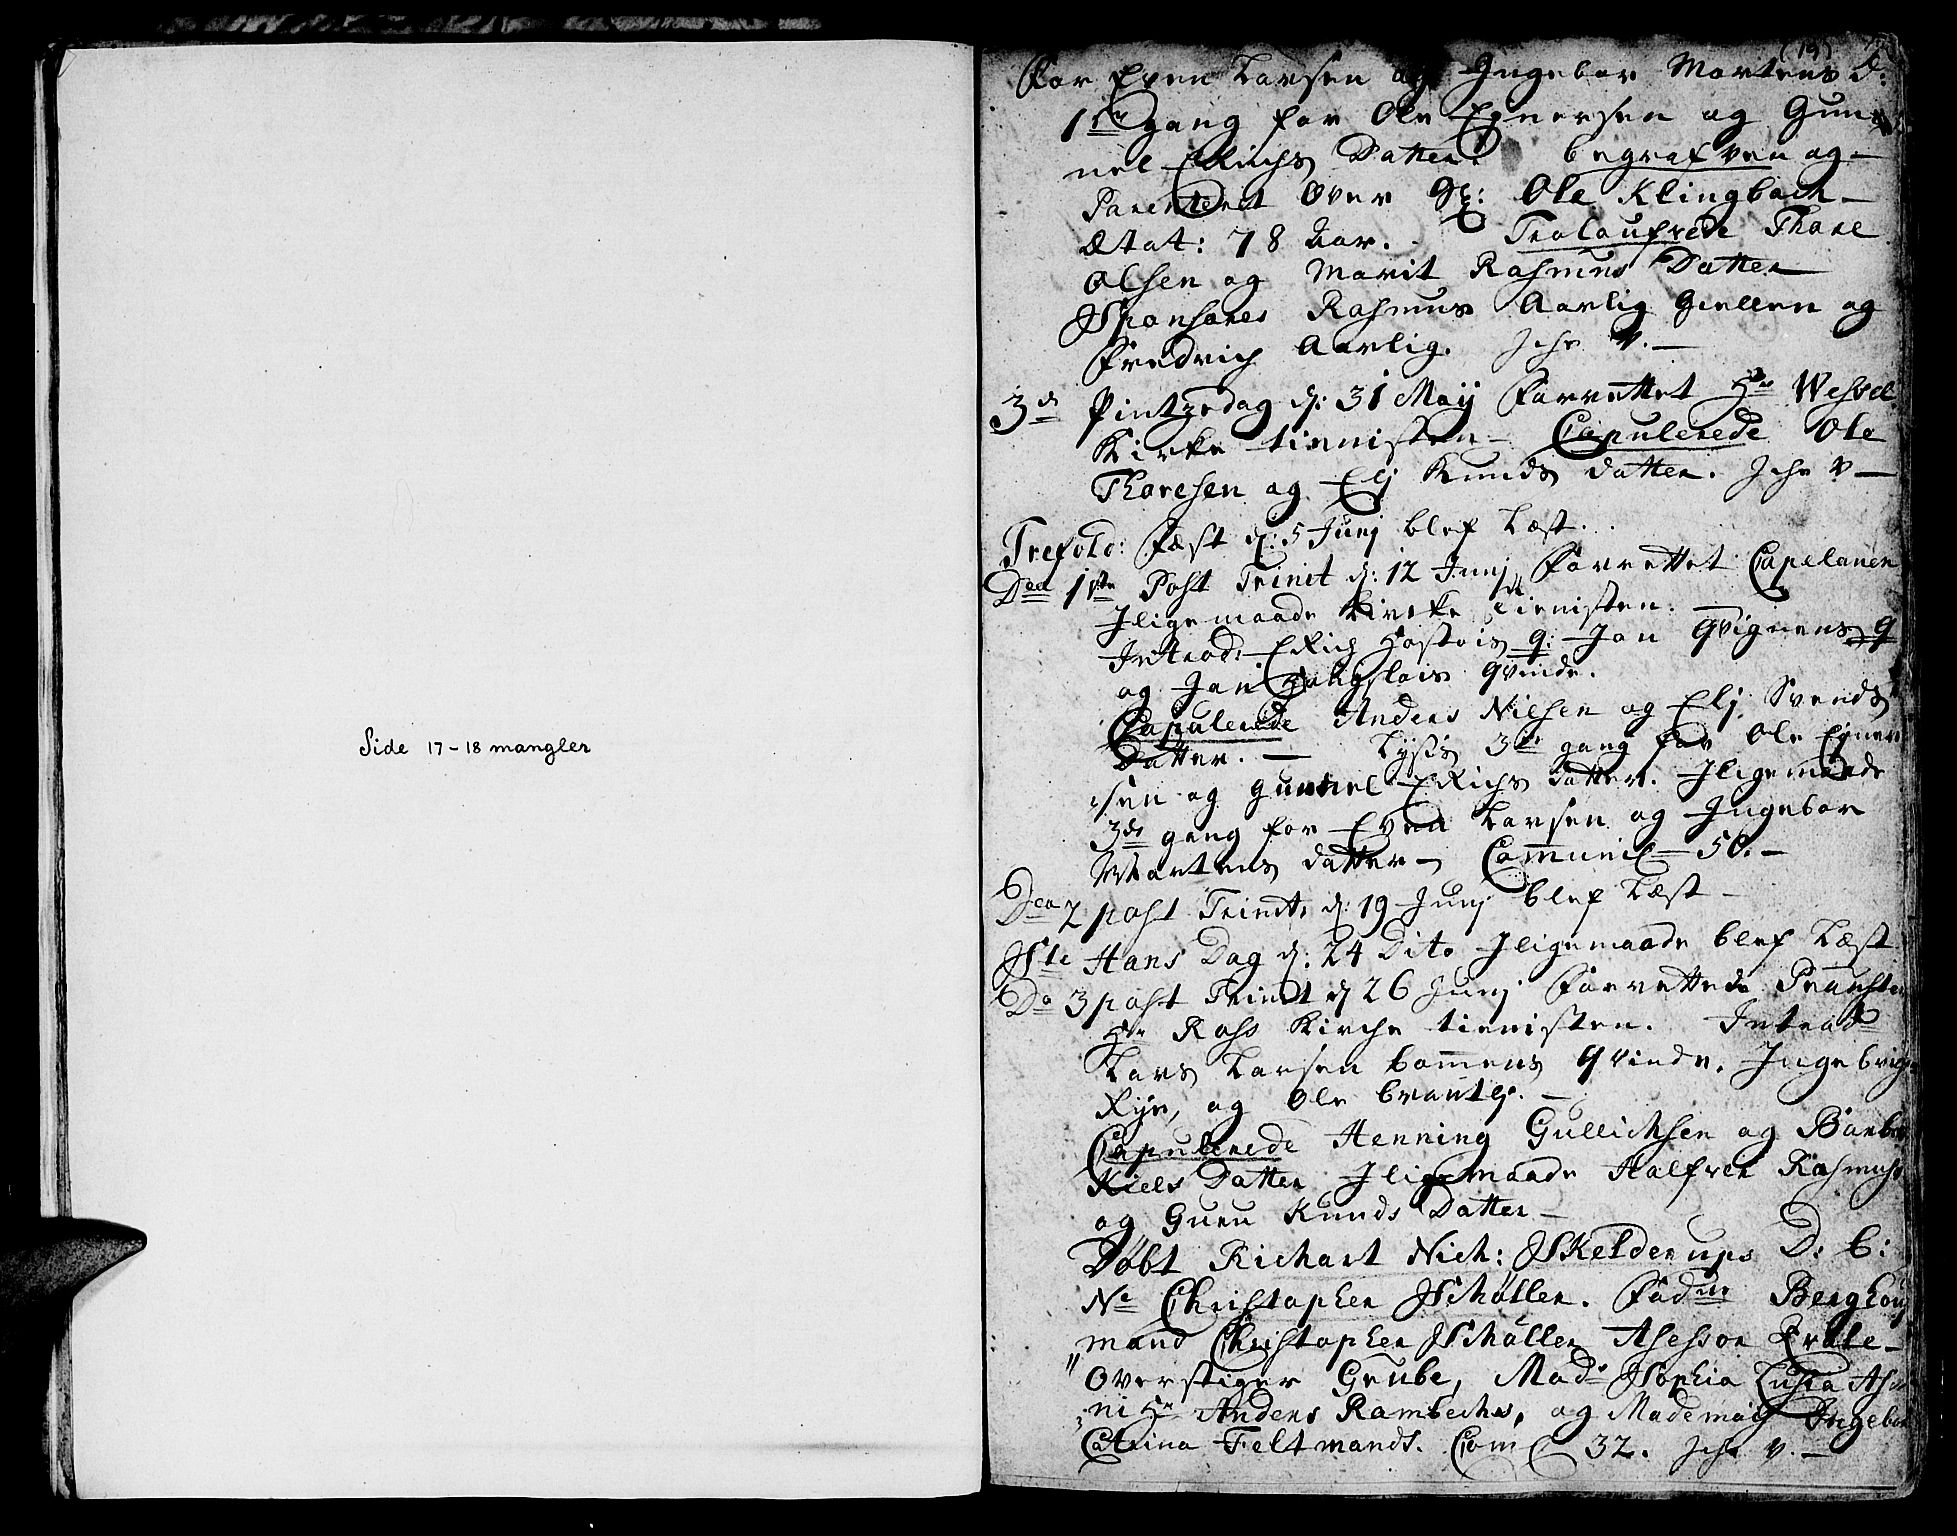 Side 17-18 mangler
(19)
For Even Larsen og Ingebor Mortens d:
1ste gang for Ole Eynersen og Gun-
nel Erichs Datter. begrafven og
Parenteret over Sl: Ole Klingbach
Ætat: 78 Aar. Trolaufvede Thore
Olsen og Marit Rasmus Datter
Sponsores Rasmus Aarlig Giellen og
Fredrich Aarlig.
3die Pintzedag d: 31 Maij Forrettet Hr Wessel
Kirke tienisten Copulerede Ole
Thoresen og Elj Knuds datter.
Trefold: Fæst d: 5 Junj blef Læst.
Dca 1ste Post Trinit d: 12 Junj Forrettet Capelanen
Iligemaade Kirke tienisten.
Introd: Erich q: Jon q
og Jon qvinde.
Copulerede Anders Nielsen og Elj Svends
Datter. Lyst 3die gang for Ole Eyner
sen og Gunnel Erichs datter. Iligemaade
3die gang for Even Larsen og Ingebor
Mortens datter Communic 50.
Dca 2 post Trinit, d: 19 Junj blef Læst
Ste Hans Dag d: 24 Dito Iligemaade blef Læst
Do 3 post Trinit d 26 Junj Forrettede Prousten
Hr Ross Kirche tienisten. Introd
Lars Larsen bommens qvinde, Ingebrigt
Rye, og Ole
Copulerede Henning Gullichsen og Barbro
Kiels Datter Iligemaade Halfver Rasmuss
og Guru Knuds Datter
Døbt Richart Nich: Skelderups D. b:
Ne Christopher Schøller. Fad Berghou
mand Christopher Schøller Asessor
Overstiger Grube, Mad Sophia Lucia As
ni Hr Anders Rambechs, og Mademois Ingebor
Catrina Feltmands. Com 32.